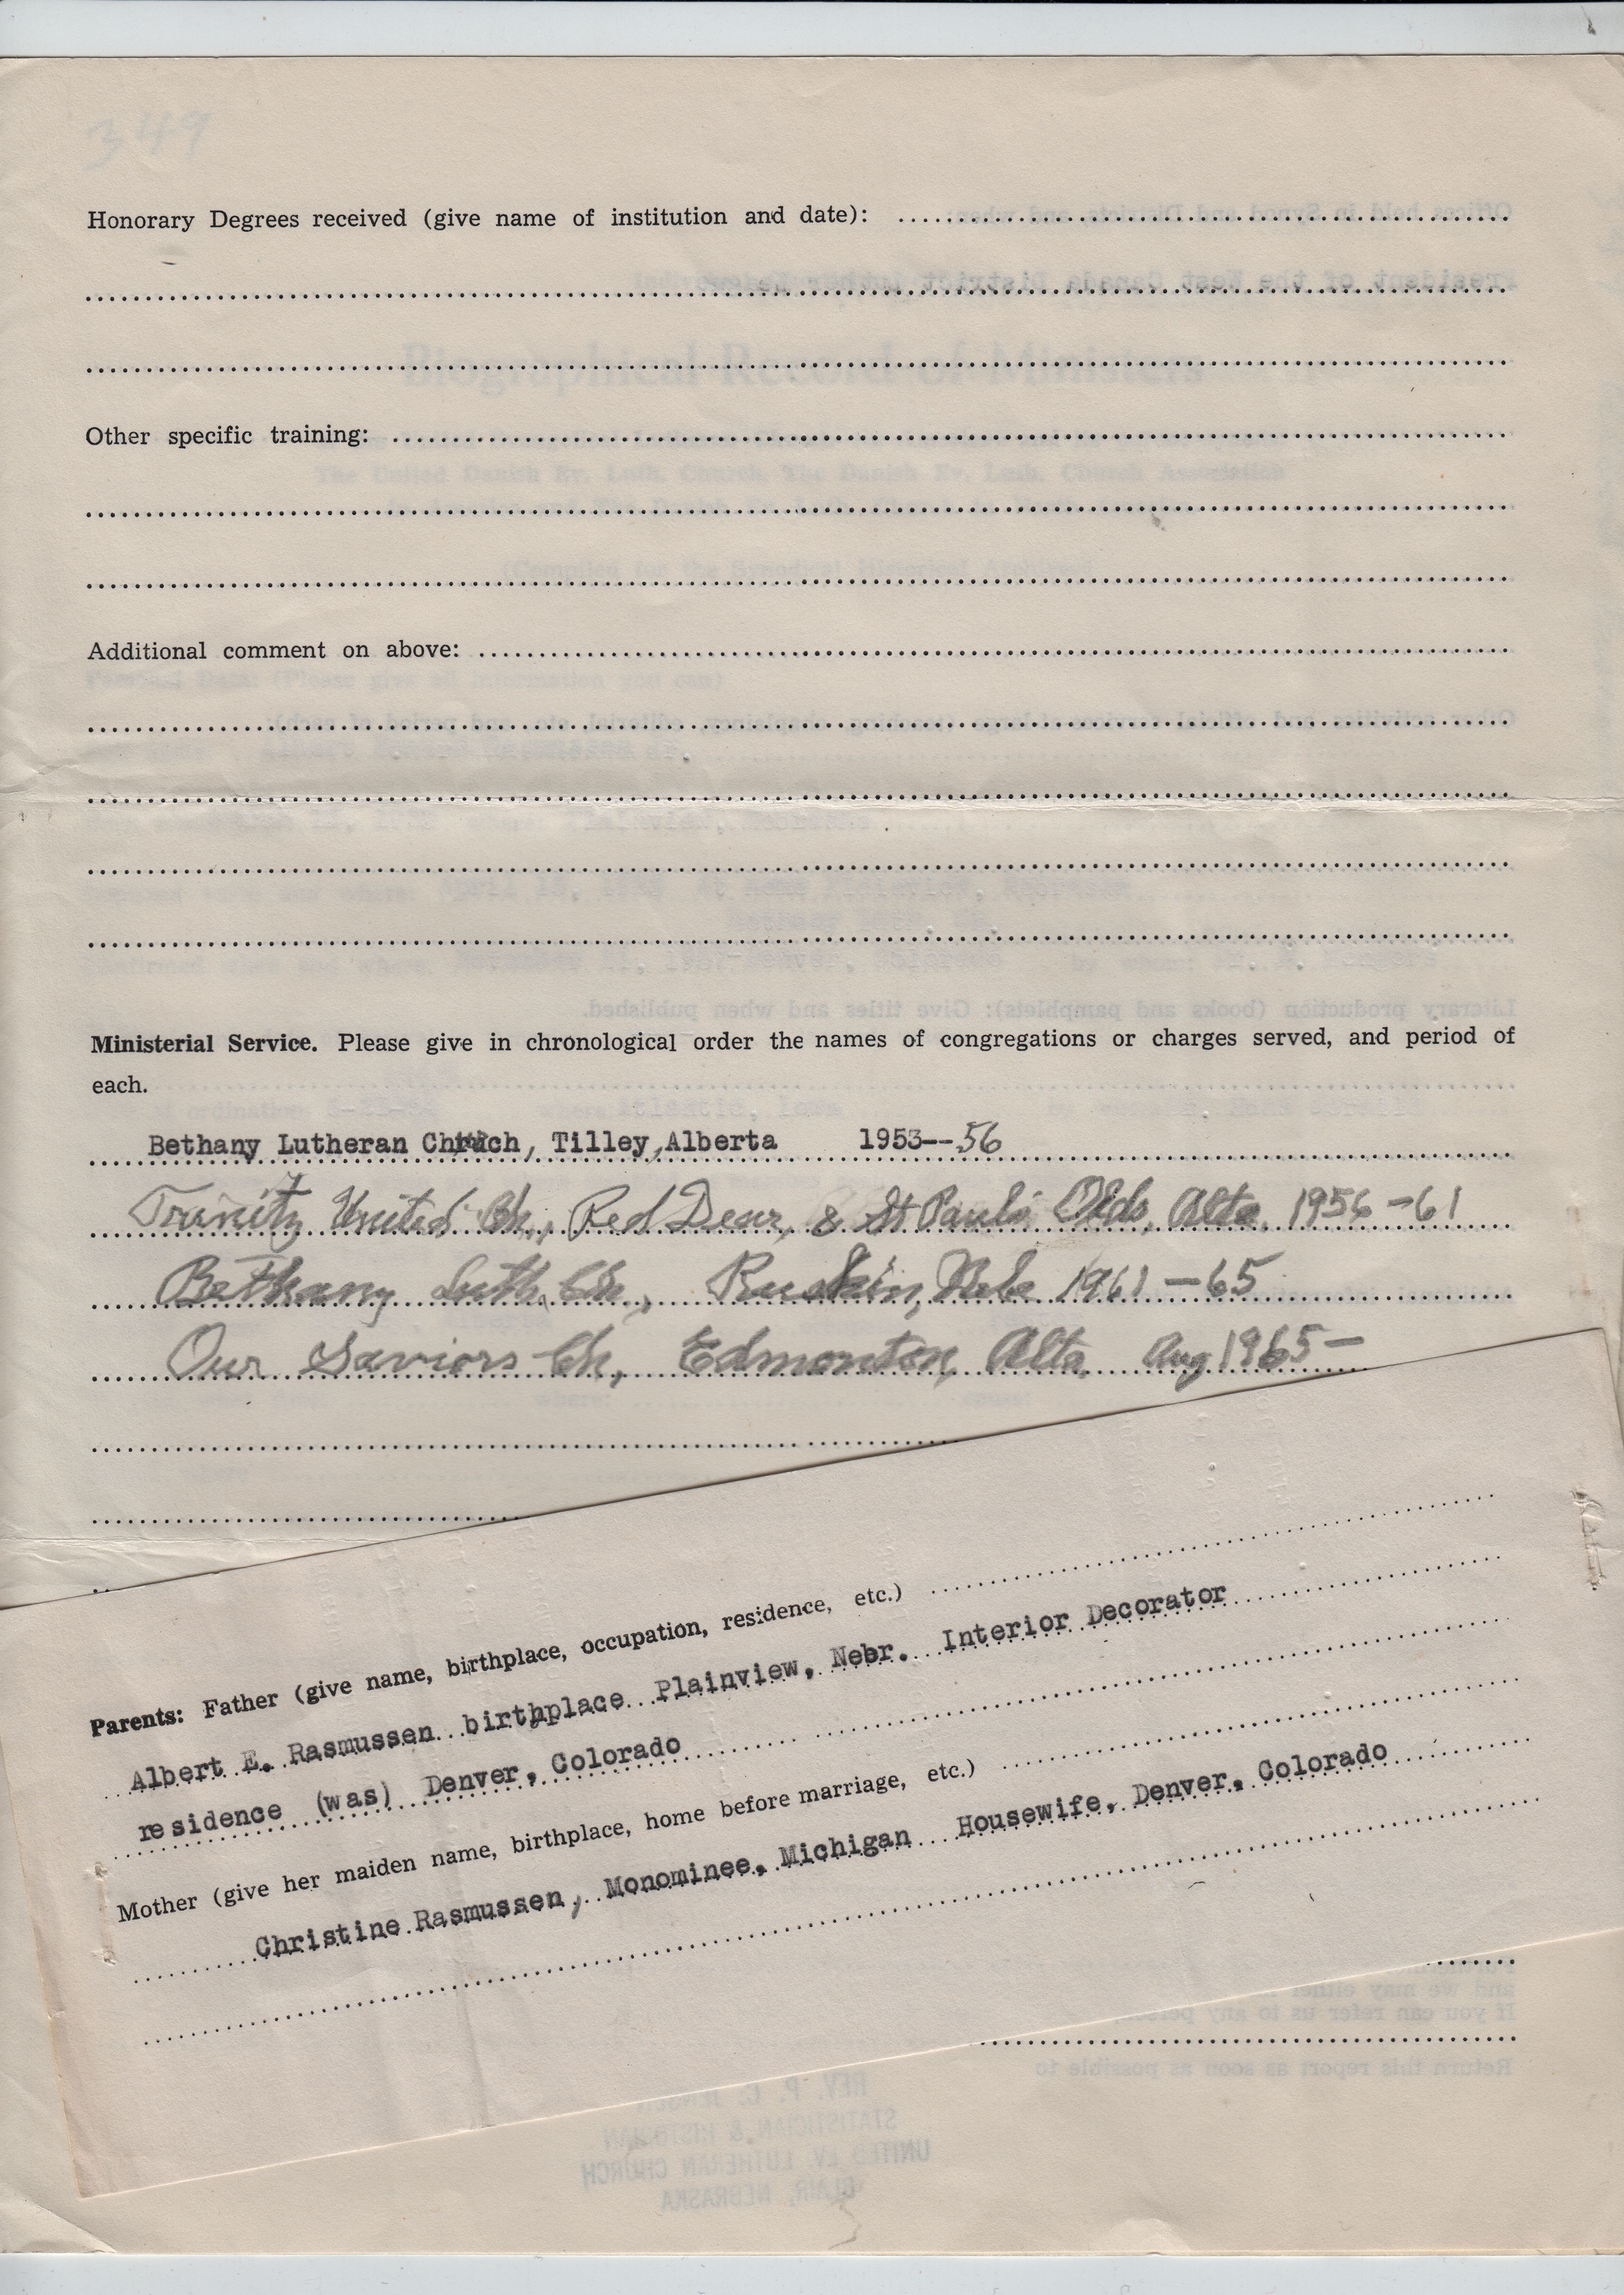 349
Honorary Degrees received (give name of institution and date):
Other specific training:
Additional comment on above:
Ministerial Service. Please give in chronological order the names of congregations or charges served, and period of
each.
Bethany Lutheran Church, Tilley, Alberta 1953--56
Trinity United Ch., Red Deer, & St Pauls Olds, Alta. 1956-61
Bethany Luth. Ch., Ruskin, Nebr 1961-65
Our Saviors Ch, Edmonton, Alta. Aug 1965-
Parents: Father (give name, birthplace, occupation, residence, etc.)
Albert E. Rasmussen birthplace Plainview, Nebr. Interior Decorator
residence (was) Denver, Colorado
Mother (give her maiden name, birthplace, home before marriage, etc.)
Christine Rasmussen, Monominee, Michigan Housewife, Denver, Colorado